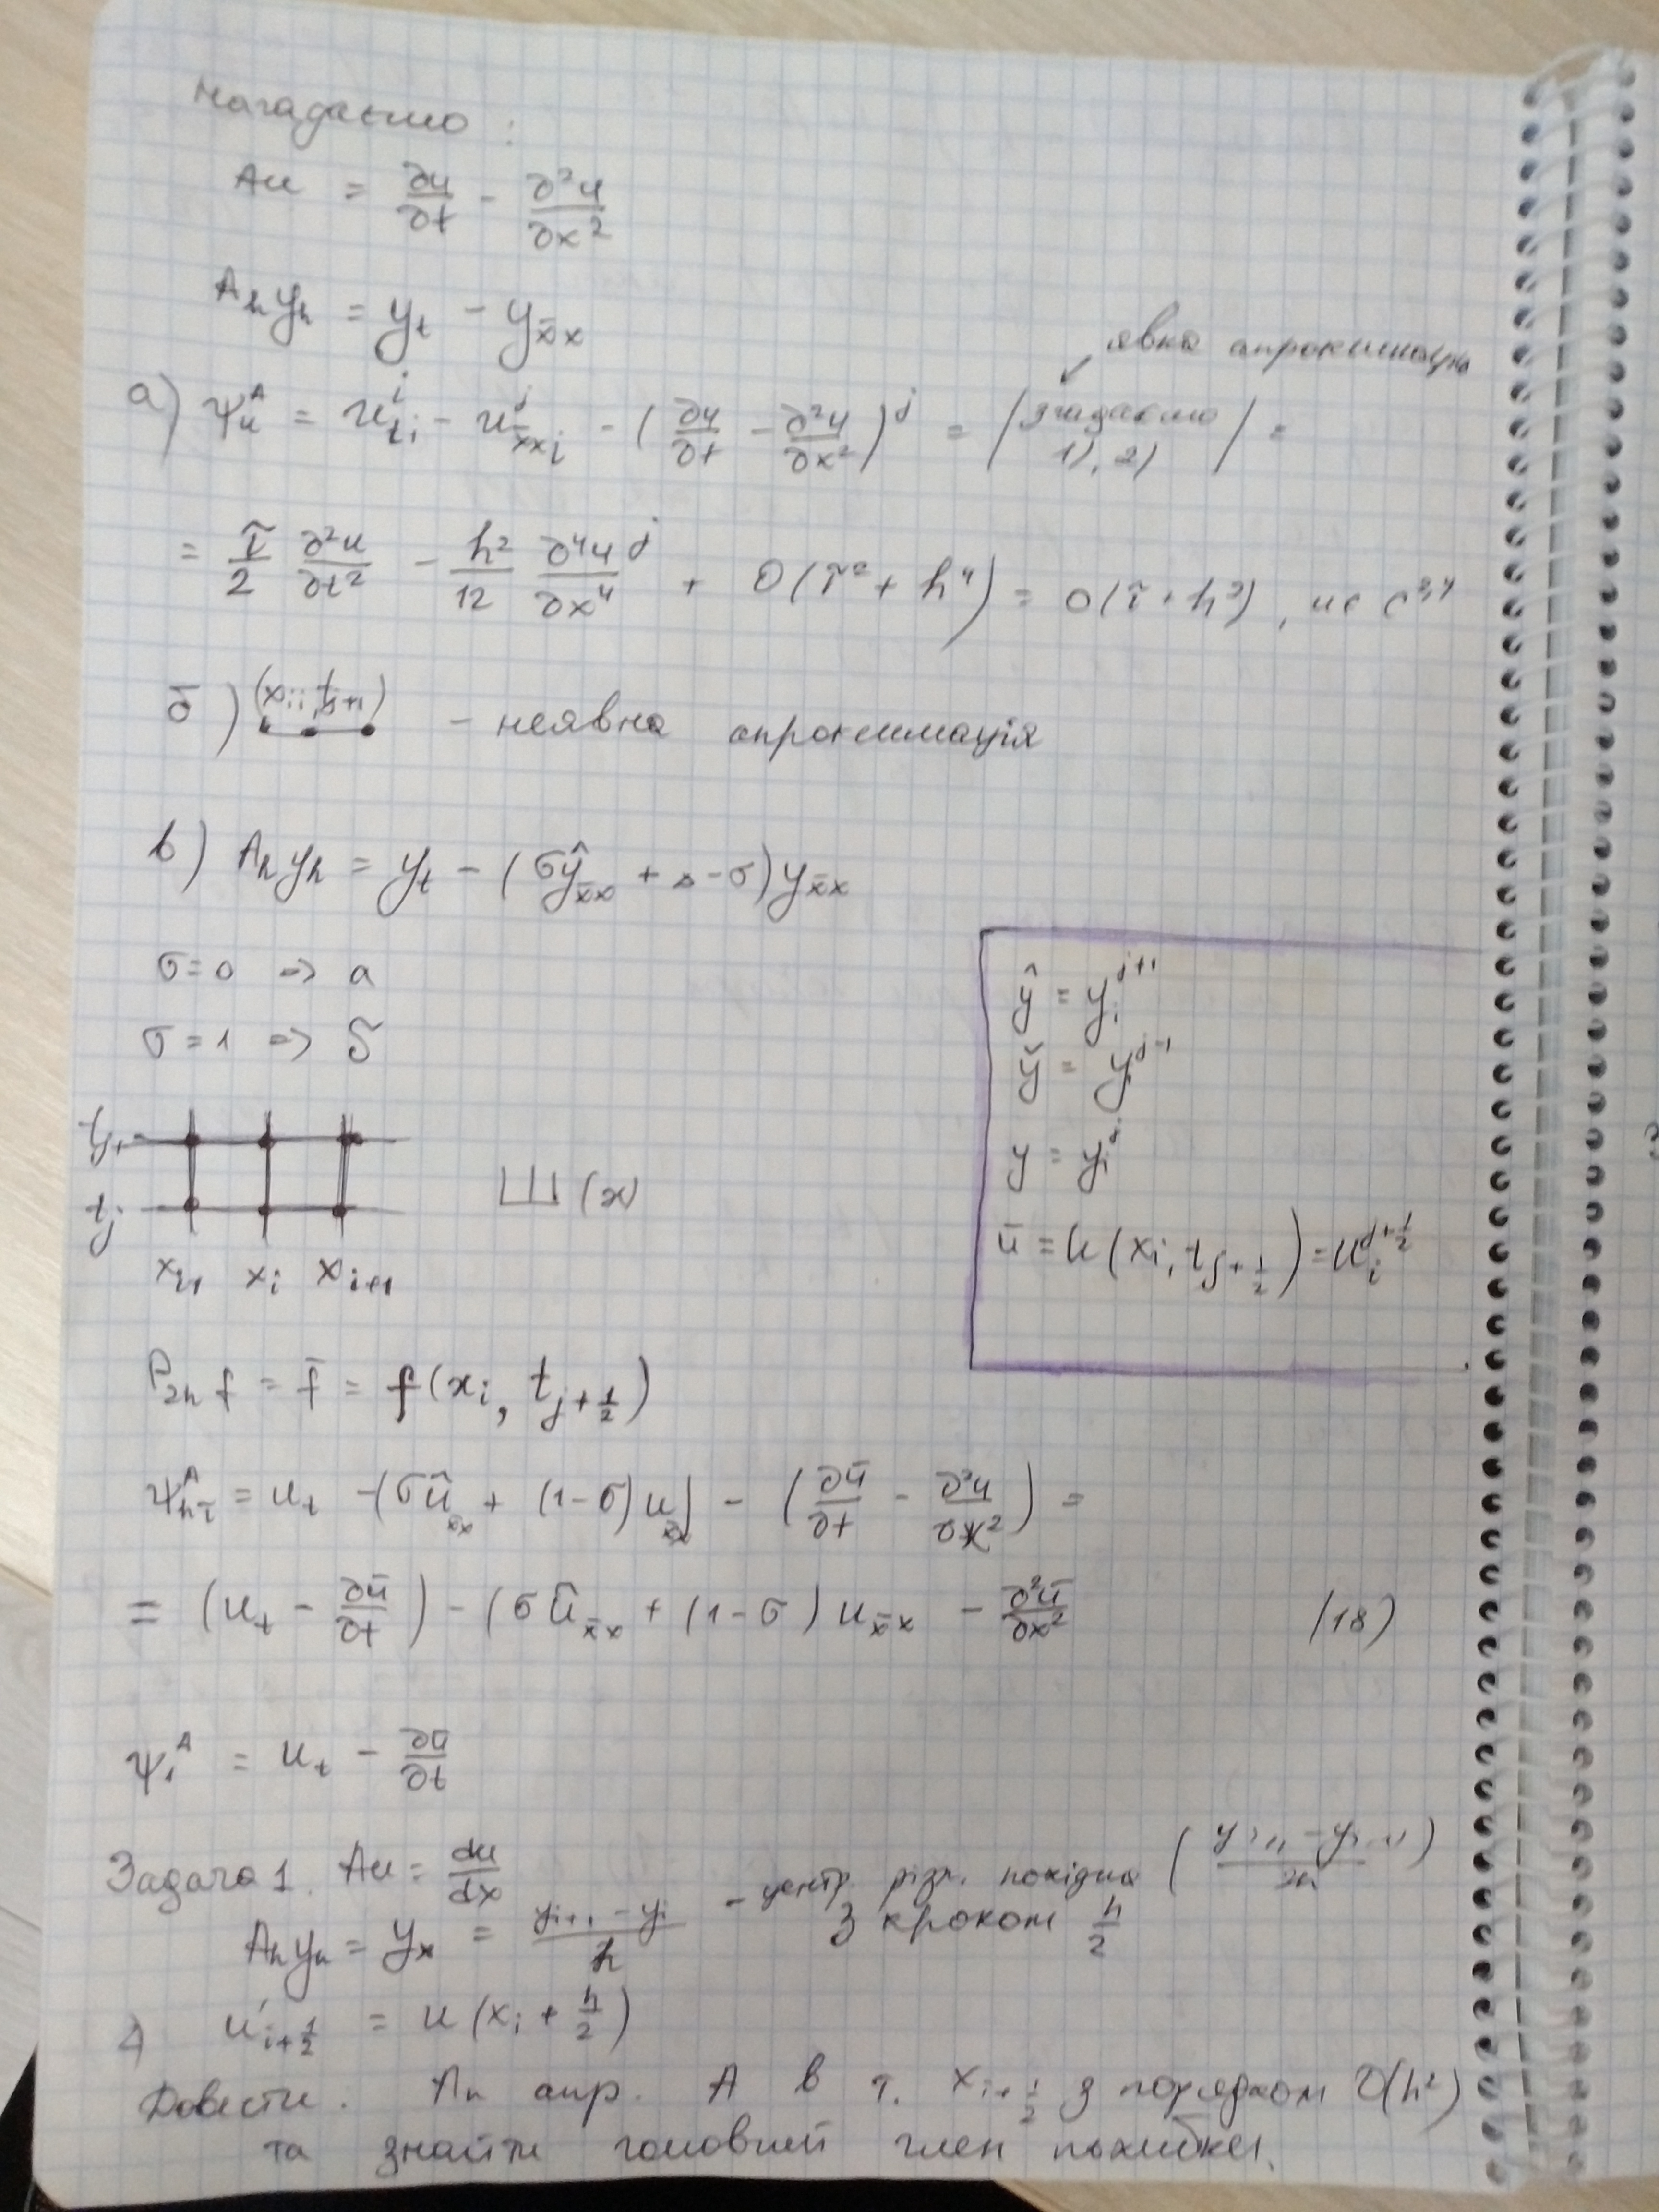 Нагадаємо :
Au = ∂u/∂t - ∂²u/∂x²
A_h y_h = y_t - y_x̄x
явна апроксимація
а) ψ_u^A = u_{t i}^j - u_{x̄x i}^j - (∂u/∂t - ∂²u/∂x²)^j = / згадаємо 1), 2) / =
= τ/2 ∂²u/∂t² - h²/12 ∂⁴u/∂x⁴ ^j + O(τ² + h⁴) = O(τ + h²), u ∈ C^{2,4}
б) (x_i, t_{j+1}) - неявна апроксимація
в) A_h y_h = y_t - (σŷ_x̄x + 1-σ)y_x̄x
σ=0 => а
σ=1 => б
ŷ = y_i^{j+1}
y̌ = y_i^{j-1}
y = y_i^j
ū = u(x_i, t_{j+1/2}) = u_i^{j+1/2}
t_{j+1}
t_j
x_{i-1} x_i x_{i+1}
Ш(x)
P_{2h} f = f̄ = f(x_i, t_{j+1/2})
ψ_{hτ}^A = u_t - (σû_x̄x + (1-σ)u_x̄x) - (∂ū/∂t - ∂²u/∂x²) =
= (u_t - ∂ū/∂t) - (σû_x̄x + (1-σ)u_x̄x - ∂²ū/∂x² (18)
ψ_1^A = u_t - ∂ū/∂t
Задача 1. Au = du/dx
A_h y_h = y_x = (y_{i+1} - y_i)/h - центр. різн. похідна ((y_{i+1} - y_{i-1})/2h)
з кроком h/2
u'_{i+1/2} = u(x_i + h/2)
Довести. A_h апр. A в т. x_{i+1/2} з порядком O(h²)
та знайти головний член похибки.